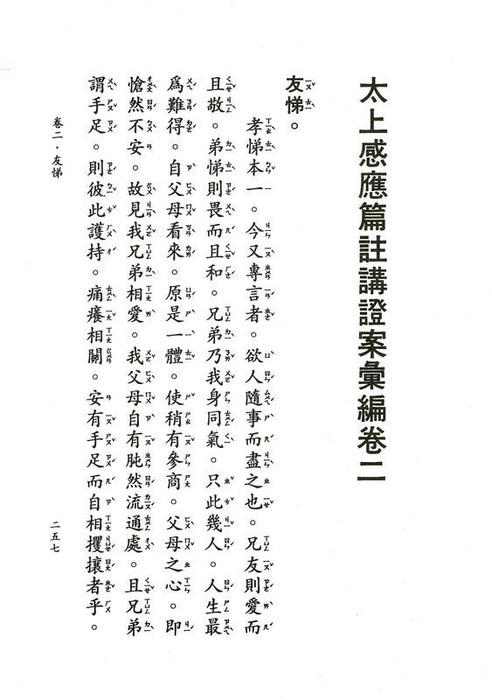 太上感應篇註講證案彙編卷二
友悌。
孝悌本一。今又專言者。欲人隨事而盡之也。兄友則愛而
且敬。弟悌則畏而且和。兄弟乃我身同氣。只此幾人。人生最
為難得。自父母看來。原是一體。使稍有參商。父母之心。即
愴然不安。故見我兄弟相愛。我父母自有肫然流通處。且兄弟
謂手足。則彼此護持。痛癢相關。安有手足而自相攫攘者乎。
卷二・友悌
二五七